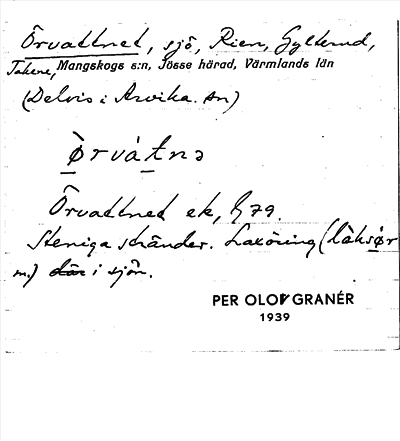 Örvattnet, sjö, Rien, Gylterud,
Takene, Mangskogs s:n, Jösse härad, Värmlands län
(Delvis i Arvika. sn)
Örvattnet ek, G 79.
Steniga stränder. Laxöring (
m.) där i sjön.
PER OLOF GRANÉR
1939